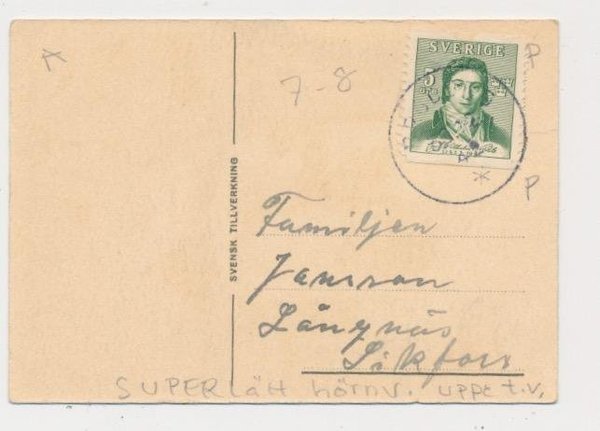 SVERIGE
5
7-8
P
P
SVENSK TILLVERKNING
Familjen
Jansson
Långnäs
Sikfors
SUPER lätt hörnv. uppe t.v.